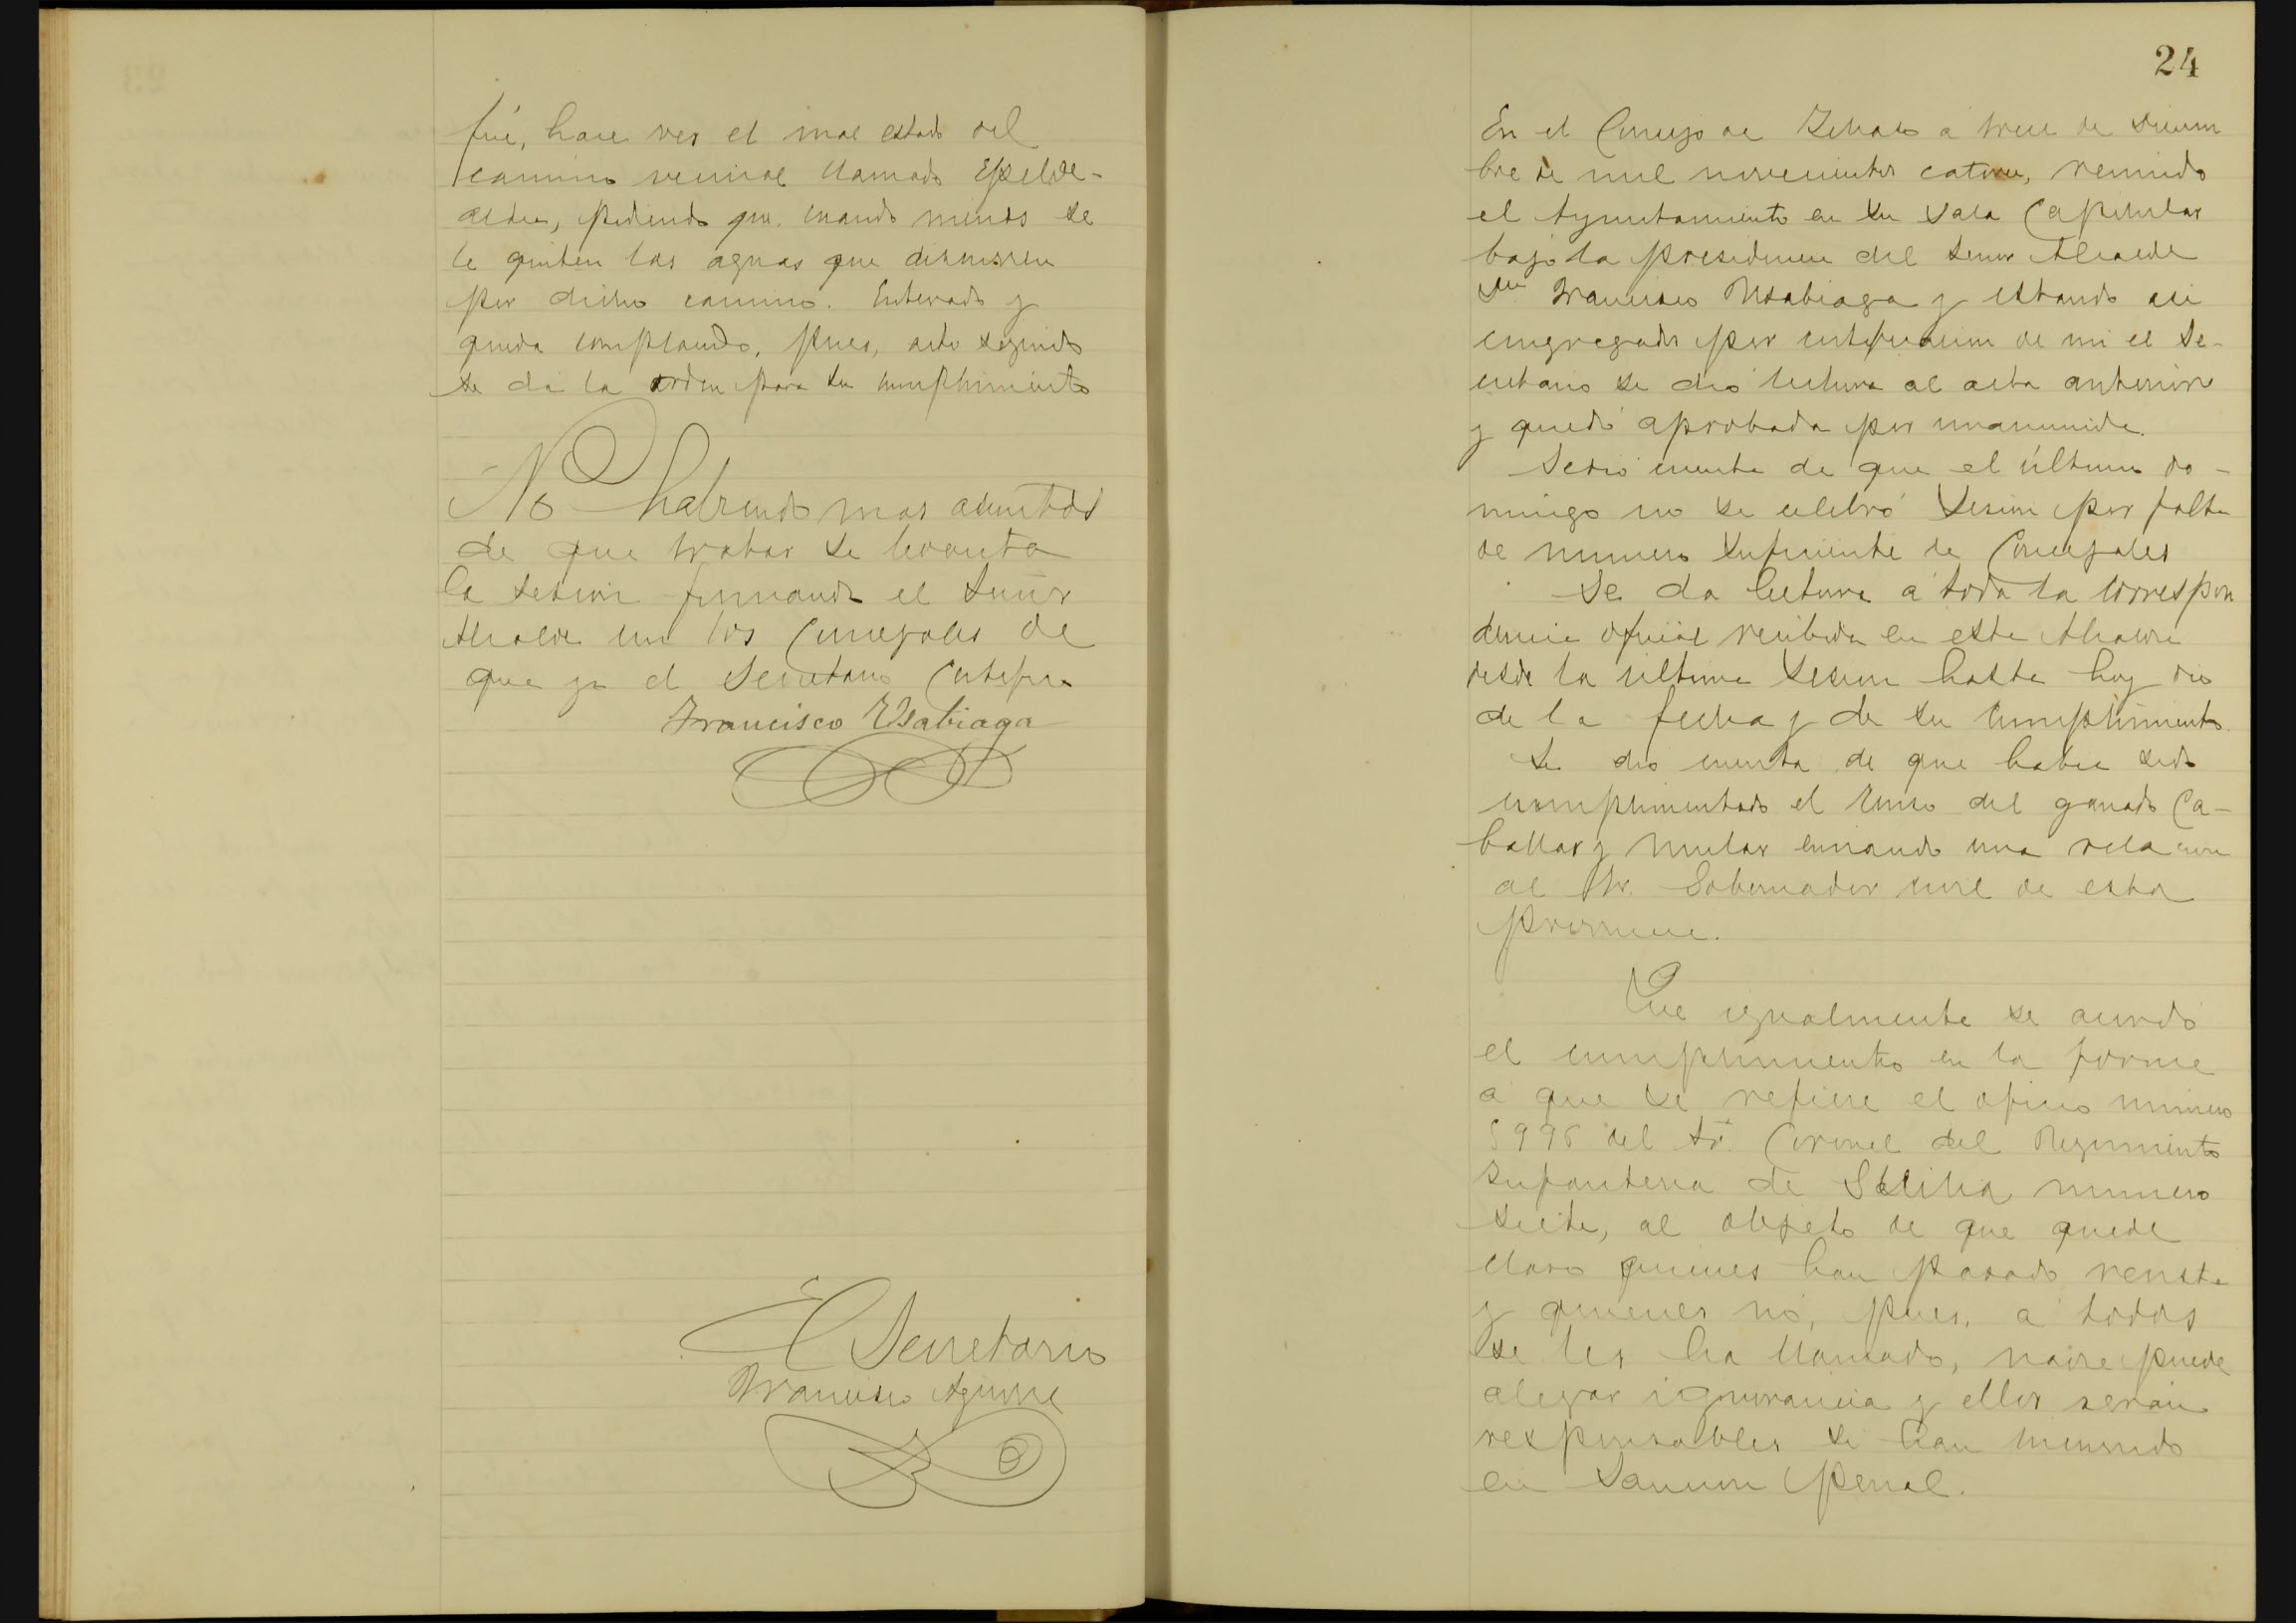 fué, hace ver el mal estado del
camino vecinal llamado Epelde-
aldea, pidiendo que cuando menos se
le quiten las aguas que discurren
por dicho camino. Enterado y
queda complacido, pues, acto seguido
se da la orden para su cumplimiento
No habiendo mas asuntos
de que tratar se levanta
la sesion firmando el Señor
Alcalde con los Concejales de
que yo el Secretario Certifico
Francisco Usabiaga
El Secretario
Francisco Aguirre
24
En el Concejo de a trece de Diciem
bre de mil novecientos catorce, reunido
el Ayuntamiento en su Sala Capitular
bajo la presidencia del Señor Alcalde
Don Francisco Usabiaga y estando asi
congregados por certificacion de mi el Se-
cretario se dio lectura al acta anterior
y quedó aprobada por unanimida.
Se dió cuenta de que el último do-
mingo no se celebró Sesion por falta
de numero suficiente de Concejales
Se da lectura a toda la correspon
dencia oficial recibida en esta Alcaldia
desde la ultima Sesion hasta hoy dia
de la fecha y de su cumplimiento.
Se dio cuenta de que habia sido
cumplimentado el Censo del ganado Ca-
ballar y mular enviando una relacion
al Sr. Gobernador civil de esta
provincia.
Que igualmente se acordó
el cumplimiento en la forma
á que se refiere el oficio numero
5996 del Sr. Coronel del Regimiento
Infanteria de Sicilia numero
siete, al objeto de que quede
claro quienes han pasado revista
y quienes nó, pues, a todos
se les ha llamado, nadie puede
alegar ignorancia y ellos serán
responsables si han incurrido
en Sancion penal.